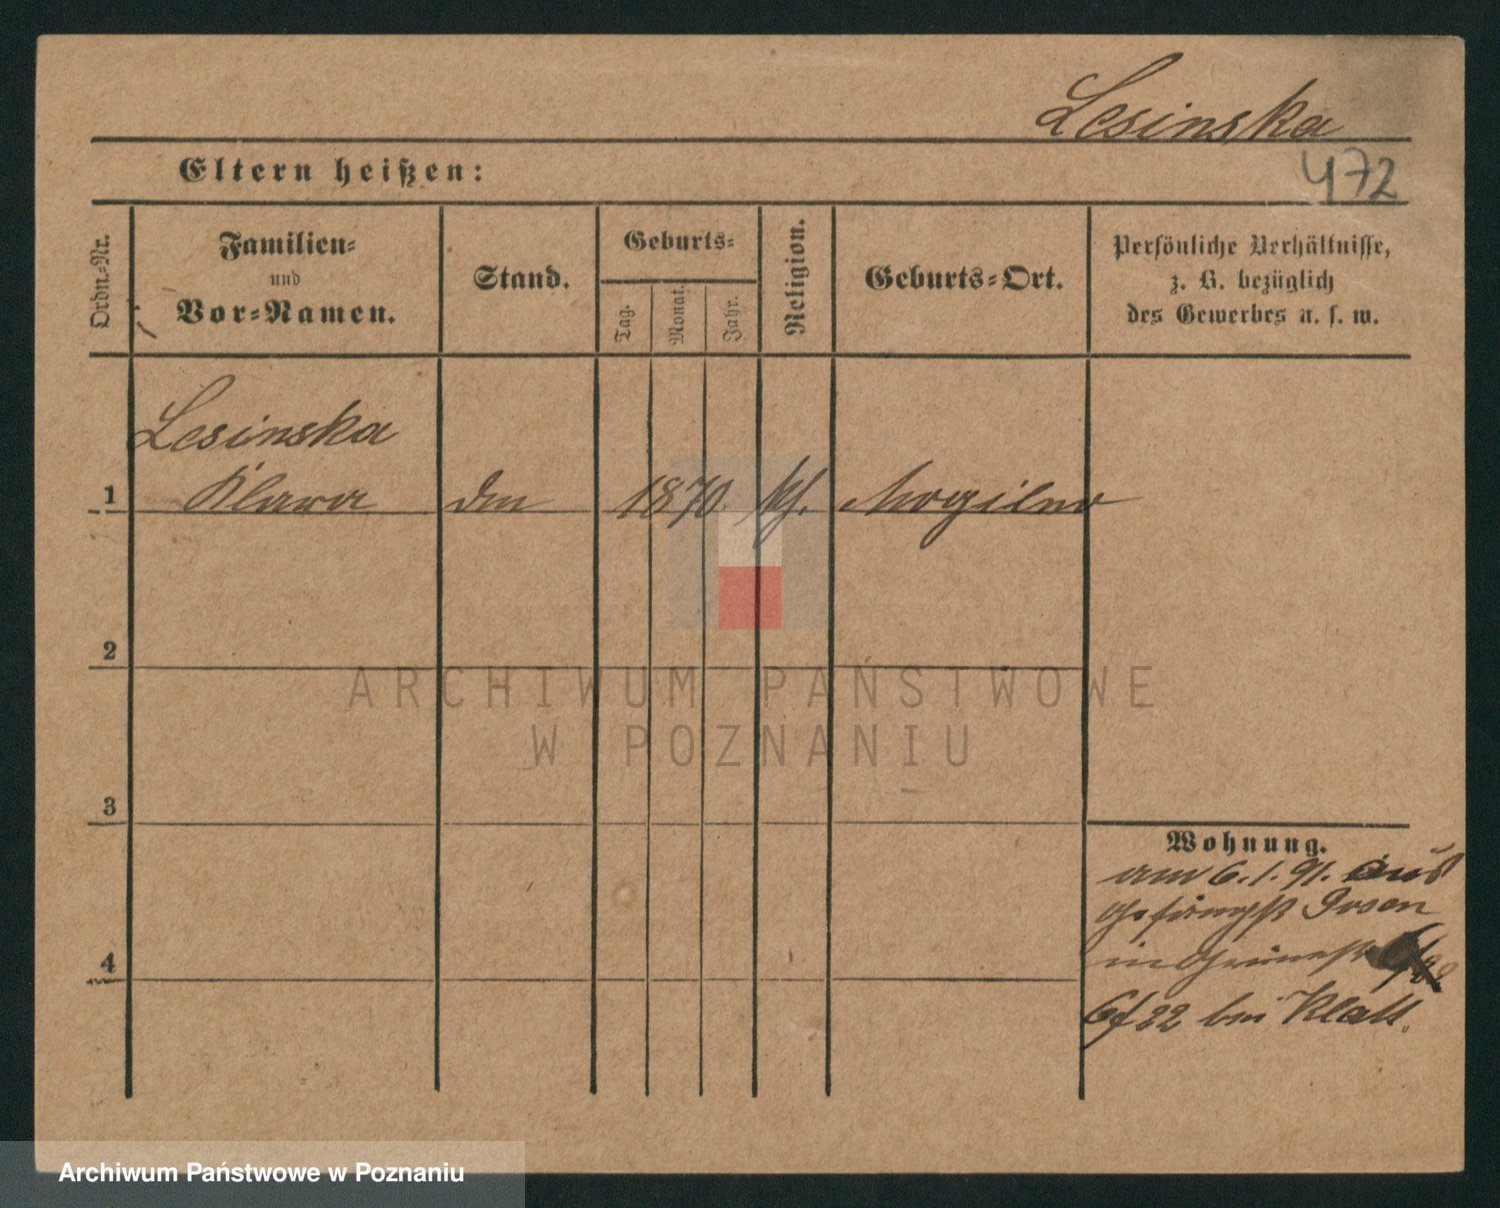 Lesinska
472
Eltern heißen:
Ordn.=Nr.
Familien=
und
Vor=Namen.
Stand.
Geburts=
Tag.
Monat.
Jahr.
Religion.
Geburts=Ort.
Persönliche Verhältnisse,
z. B. bezüglich
des Gewerbes u. s. w.
Lesinska
1 Klara 1870. Mogilno
2
3
4
Wohnung.
am 6.1.91. aus
Posen
in
22 bei Klatt.
ARCHIWUM PAŃSTWOWE
W POZNANIU
Archiwum Państwowe w Poznaniu